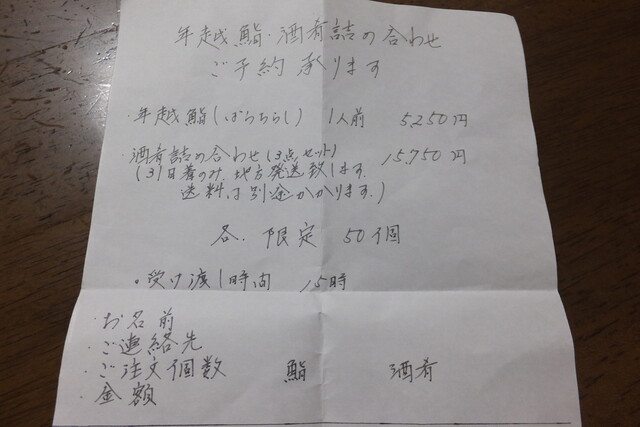 年越鮨・酒肴詰の合わせ
ご予約承ります
・年越鮨(ばらちらし) 1人前 5,250円
・酒肴詰の合わせ(3点セット) 15,750円
(31日着のみ、地方発送致します。
送料は別途かかります。)
各、限定 50個
。受け渡し時間 15時
・お名前
・ご連絡先
・ご注文個数 鮨 酒肴
・金額